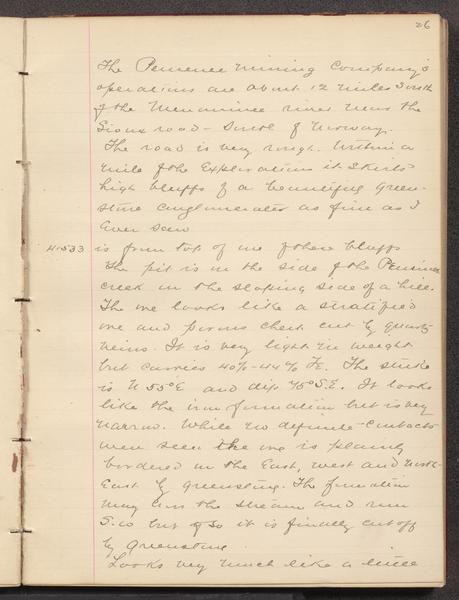 26
The Pemenee mining Company's
operations are about 12 miles South
of the Menominee river near the
Sioux road - South of Norway.
The road is very rough. Within a
mile of the Explorations it skirts
high bluffs of a beautiful green-
stone conglomerate as fine as I
Ever saw
41533 is from top of one of these bluffs
The pit is on the side of the
creek on the sloping side of a hill.
The ore looks like a stratified
ore and forms chert cut by quartz
veins. It is very light in weight
but carries 40%-44% Fe. The strike
is N 55°E and dip 75°S.E. It looks
like the iron formation but is very
narrow. While no definite contacts
were seen the ore is plainly
bordered on the East, west and north-
East by greenstone. The formation
may cross the stream and run
S.W. but if so it is finally cut off
by Greenstone.
Looks very much like a little